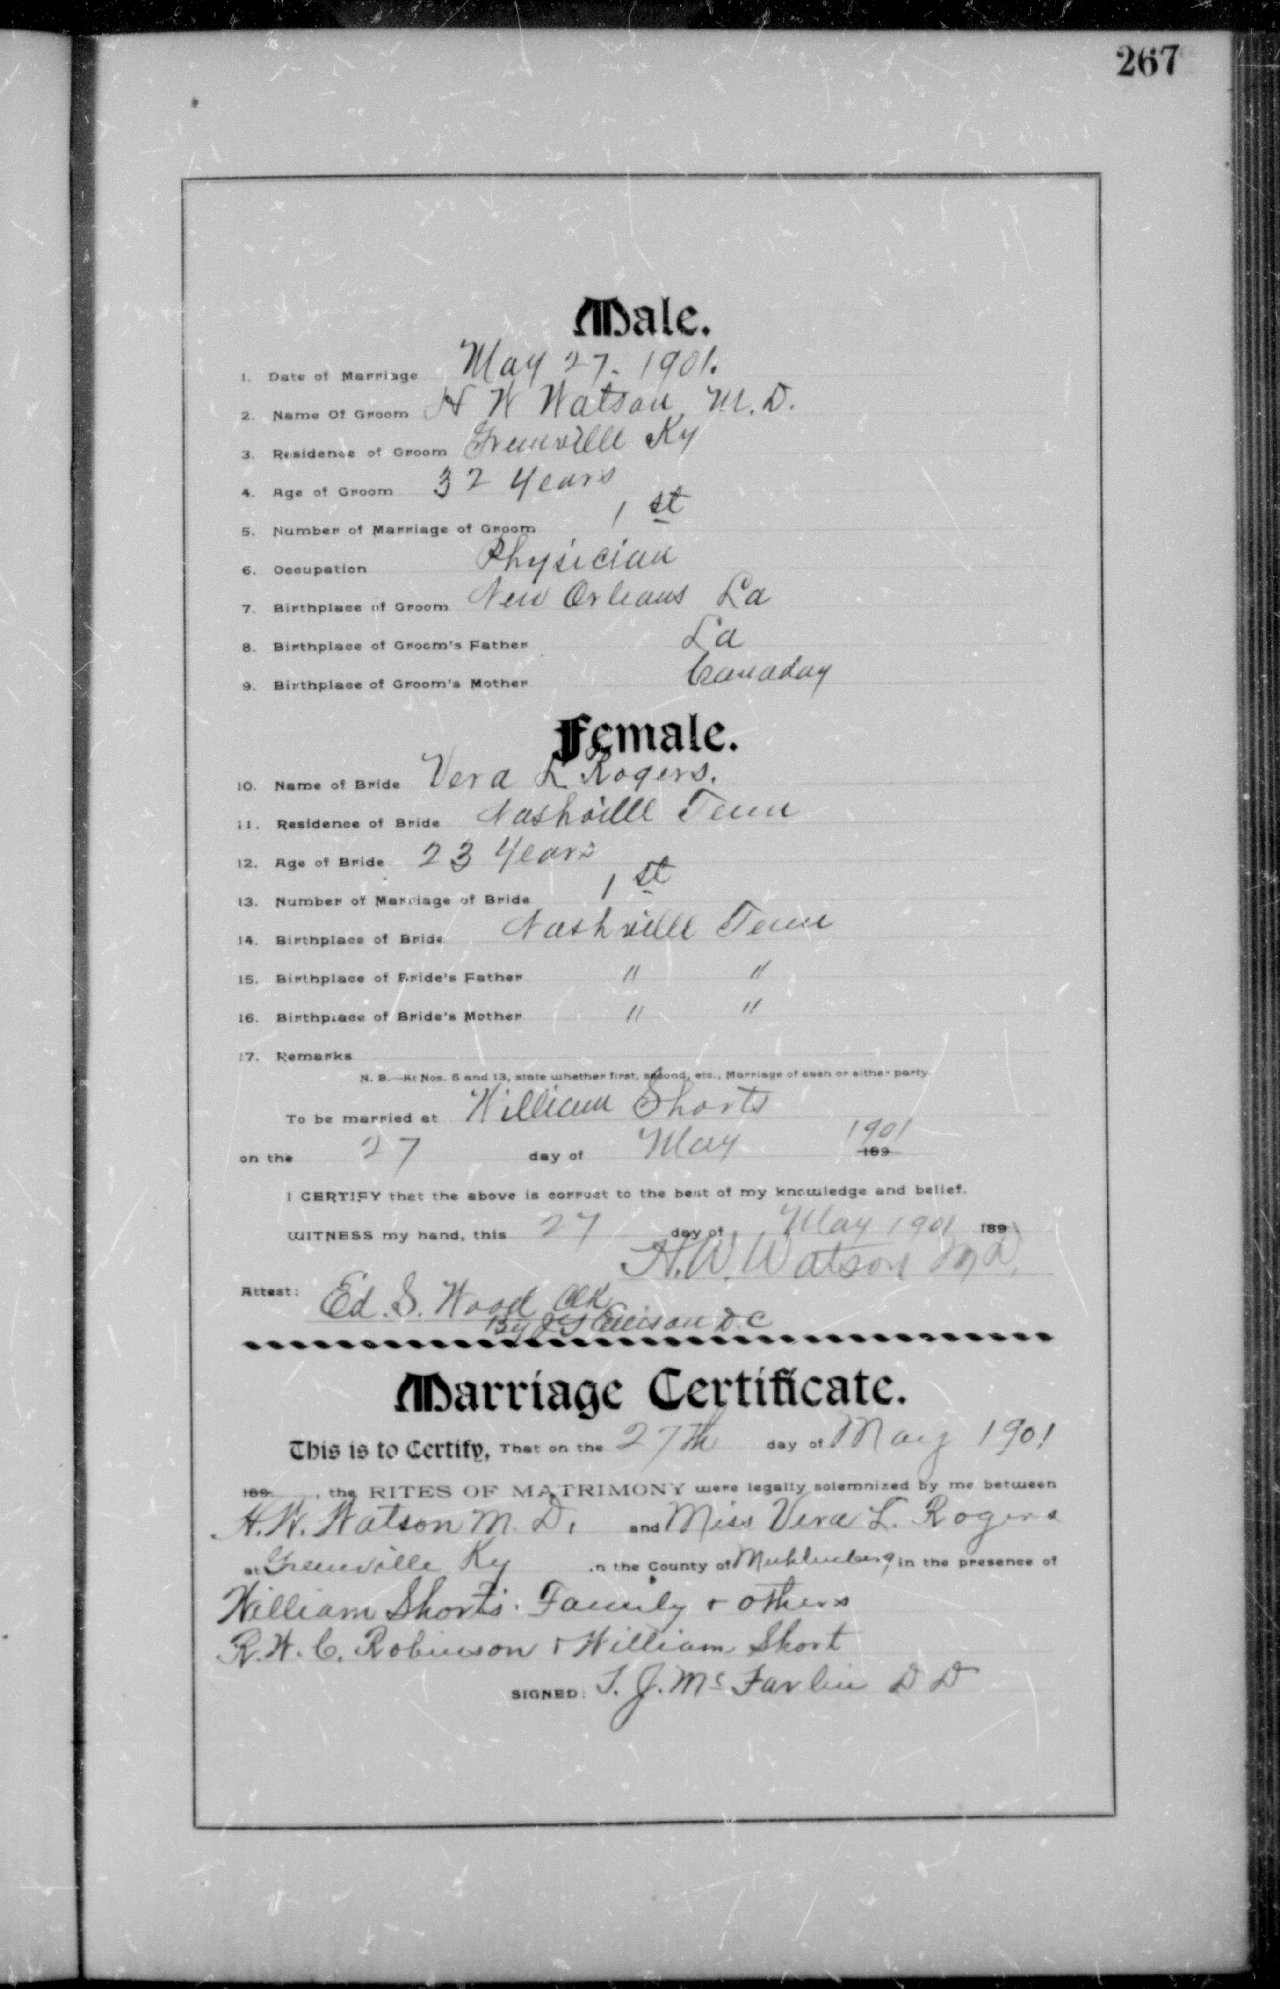 267
Male.
1. Date of Marriage May 27. 1901.
2. Name Of Groom H W Watson M.D.
3. Residence of Groom Greenville Ky
4. Age of Groom 32 Years
5. Number of Marriage of Groom 1st
6. Occupation Physician
7. Birthplace of Groom New Orleans La
8. Birthplace of Groom's Father La
9. Birthplace of Groom's Mother Canaday
Female.
10. Name of Bride Vera L. Rogers.
11. Residence of Bride Nashville Tenn
12. Age of Bride 23 Years
13. Number of Marriage of Bride 1st
14. Birthplace of Bride Nashville Tenn
15. Birthplace of Bride's Father " "
16. Birthplace of Bride's Mother " "
17. Remarks
N. B.—At Nos. 5 and 13, state whether first, second, etc., Marriage of each or either party.
To be married at William Shorts
on the 27 day of May 1901 189
I CERTIFY that the above is correct to the best of my knowledge and belief.
WITNESS my hand, this 27 day of May 1901 189
H.W. Watson M.D.
Attest: Ed. S. Wood Clk
By D.C
Marriage Certificate.
This is to Certify, That on the 27th day of May 1901
189 , the RITES OF MATRIMONY were legally solemnized by me between
H.W. Watson M.D. and Miss Vera L. Rogers
at Greenville Ky in the County of Muhlenberg in the presence of
William Shorts. Family & others
R.W.C. Robinson & William Short
SIGNED: T. J. McFarlin D D